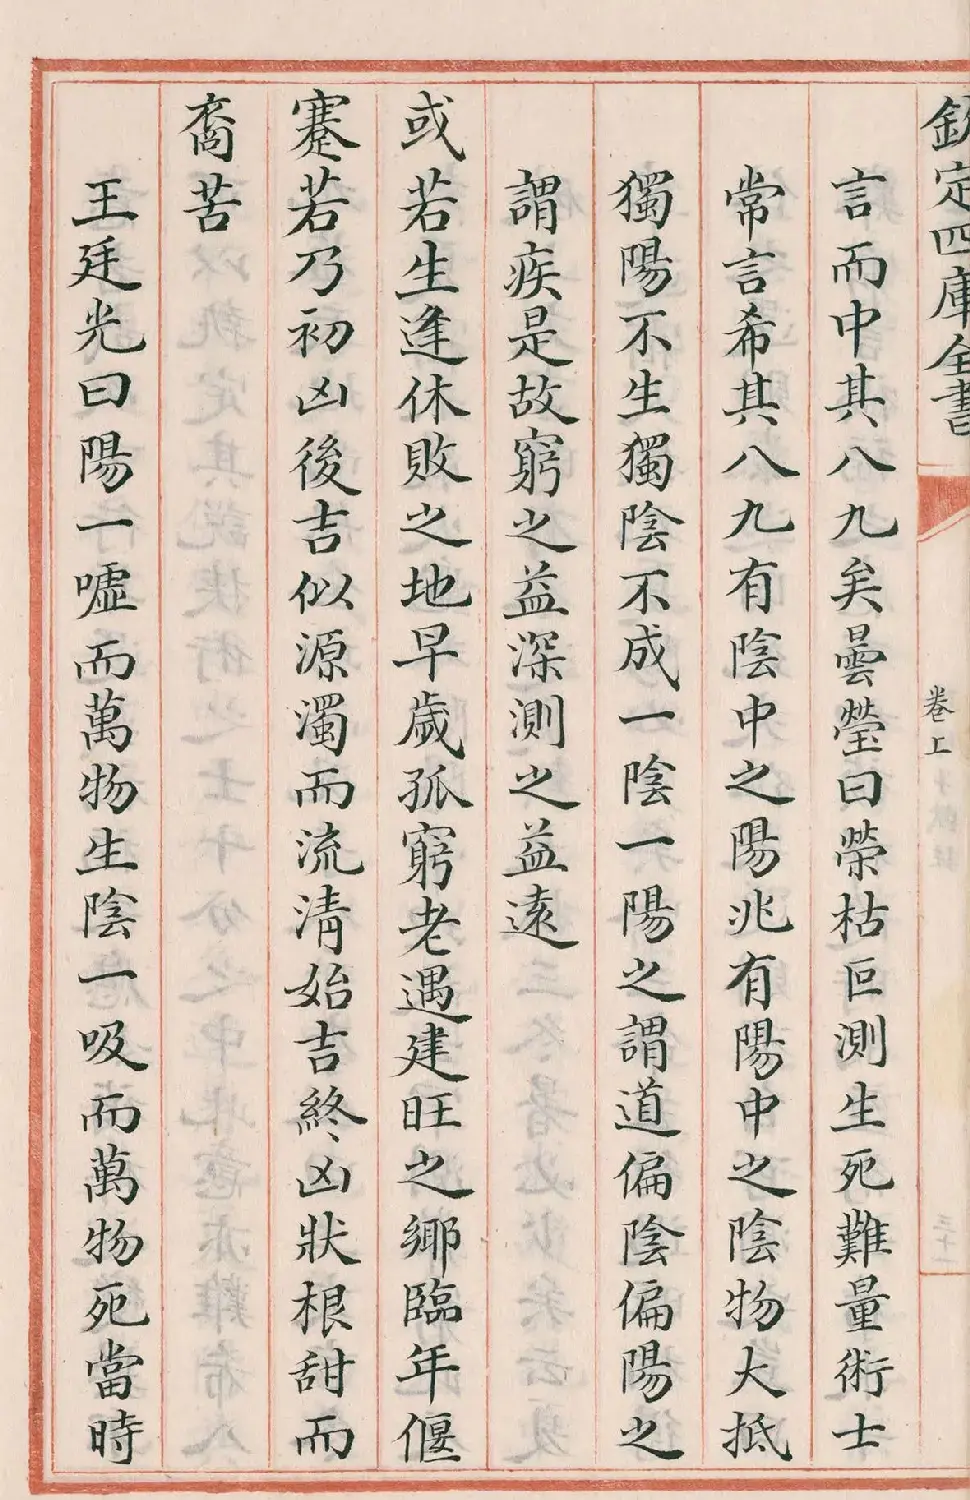 欽定四庫全書
卷上
言而中其八九矣曇瑩曰榮枯叵測生死難量術士
常言希其八九有陰中之陽兆有陽中之陰物大抵
獨陽不生獨陰不成一陰一陽之謂道偏陰偏陽之
謂疾是故窮之益深測之益遠
或若生逢休敗之地早歲孤窮老遇建旺之鄉臨年偃
蹇若乃初凶後吉似源濁而流清始吉終凶狀根甜而
裔苦
王廷光曰陽一噓而萬物生陰一吸而萬物死當時